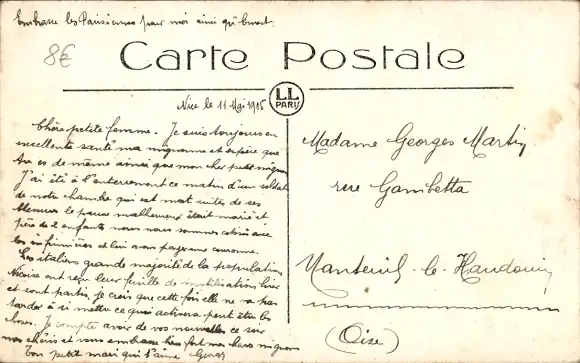 Embrasse les Parisiennes pour moi ainsi qu'Ernest.
8€
Carte Postale
LL
PARIS
Nice le 11 Mai 1915
Chère petite femme. Je suis toujours en
excellente santé ma mignonne et espère que
tu es de même ainsi que mon cher petit mignon
J'ai été à l'enterrement ce matin d'un soldat
de notre chambre qui est mort suites de ses
blessures le pauvre malheureux était marié et
père de 2 enfants nous nous sommes cotisés avec
les infirmières et lui avons payé une couronne.
Les italiens grande majorité de la population
Niçoise ont reçu leur feuille de mobilisation hier
et sont partis, je crois que cette fois elle ne va pas
tarder à s'y mettre ce qui activera peut être les
choses. Je compte avoir de vos nouvelles ce soir
mes chéris et vous embrasse bien fort mes chers mignons
Ton petit mari qui t'aime Georges
Madame Georges Martin
rue Gambetta
Nanteuil-le-Haudouin
(Oise)